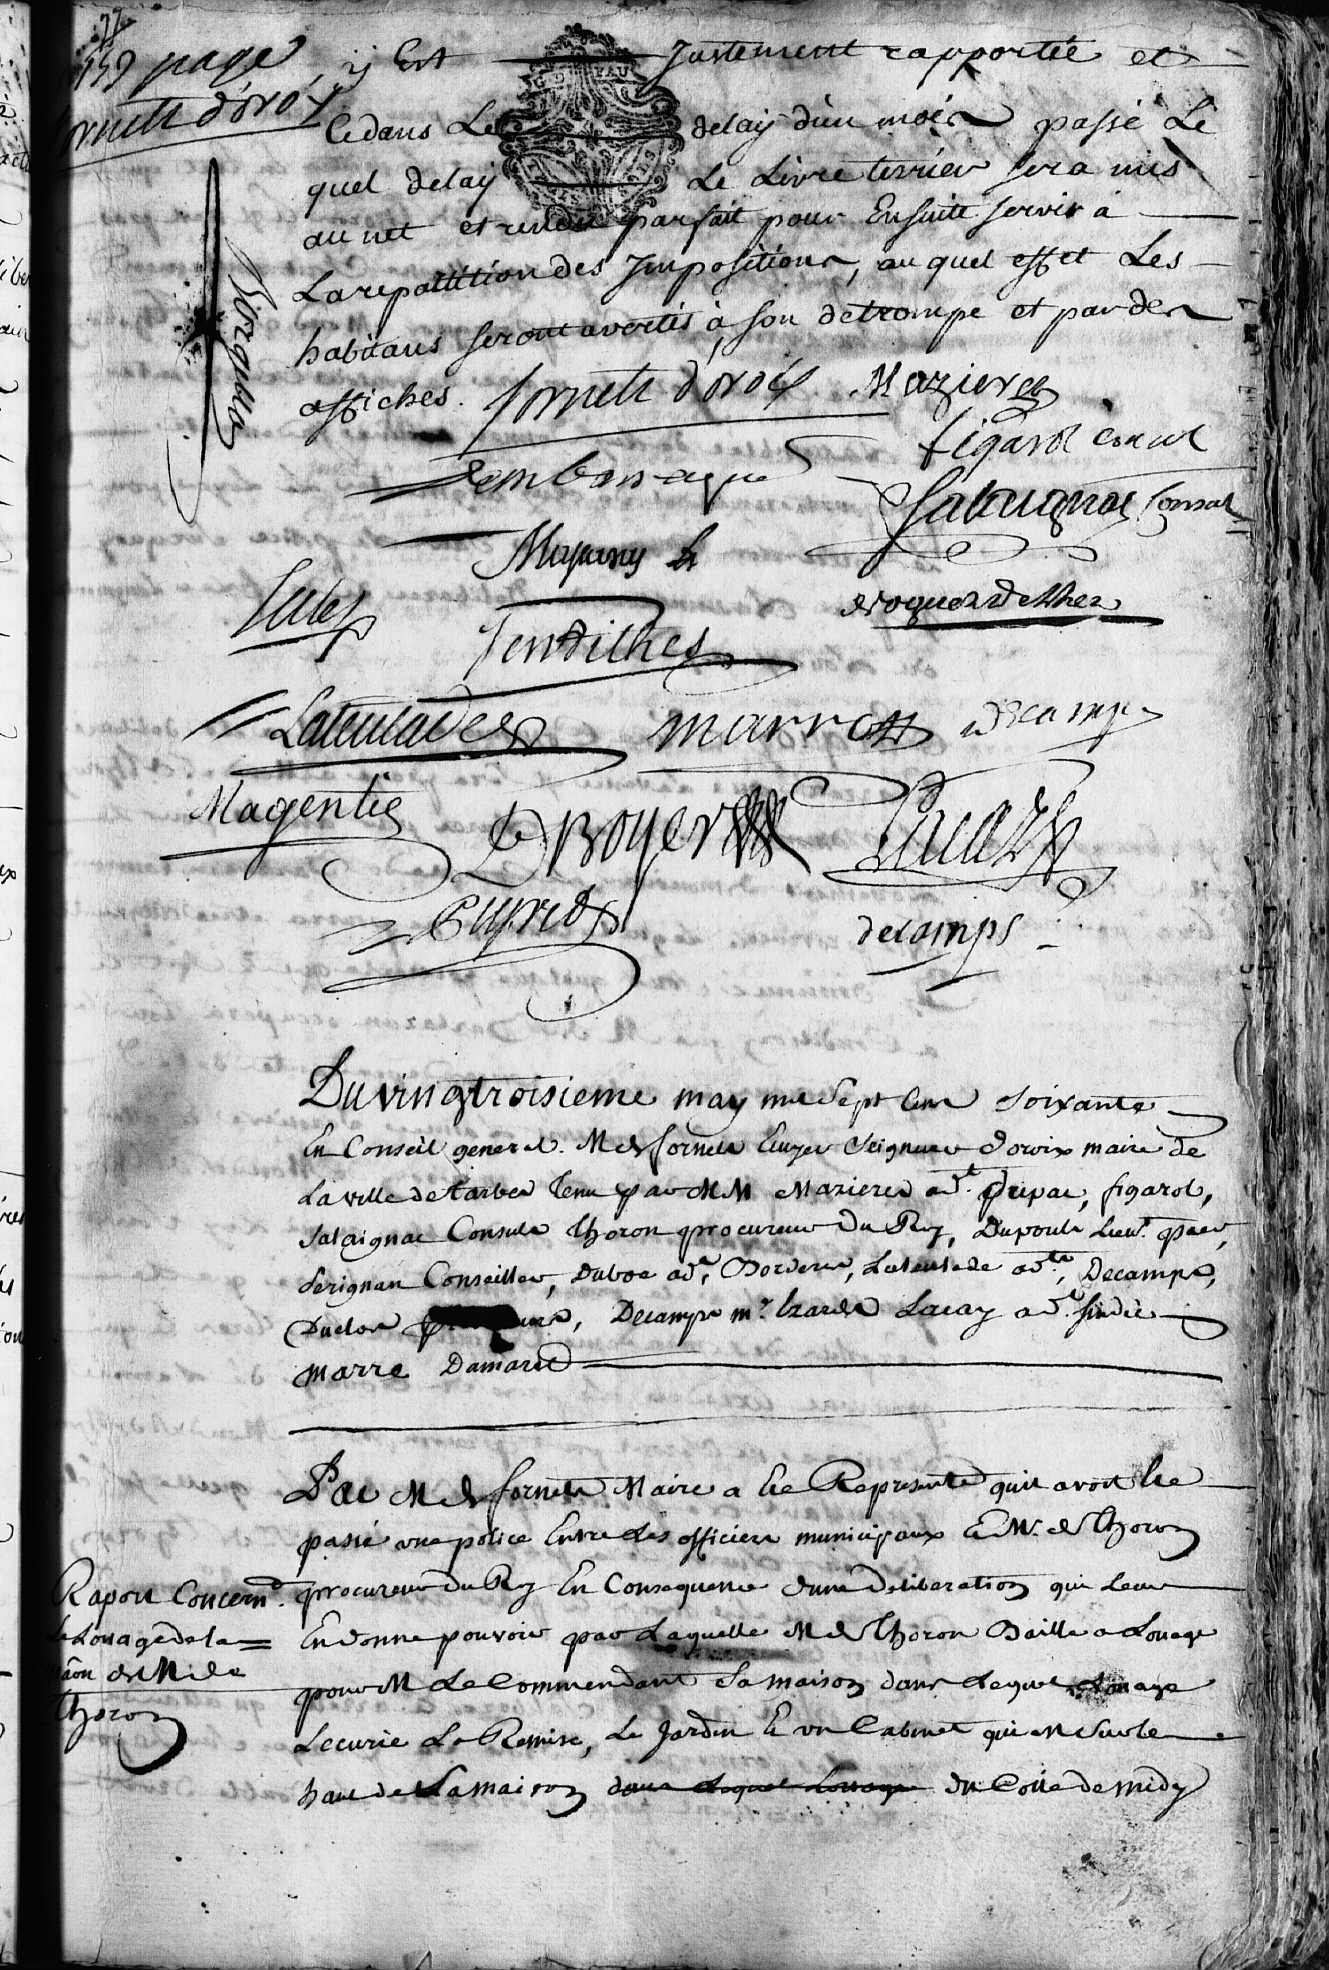 159 page
fornetz d'oroix
y Est Justement rapportée et
Ce dans Le delay d'un mois passé Le
quel delay Le Livre terrier sera mis
au net et rendu parfait pour Ensuite servir à
La repartition des Impositions, au quel effet Les
habitans seront avertis à son de trompe et par des
affiches. fornetz d'oroix Mazieres
figarol consul
Salaignac Consul
Tendilhes
Lateulade marre decamps
Magentie Boyer
Duprat decamps
Du vingtroisieme may mil Sept Cens Soixante
En Conseil general. M de fornets Ecuyer Seigneur Doroix maire de
La ville de tarbes Tenu par MM Mazieres adt. Dupac, figarol,
Salaignac Consuls Thoron procureur Du Roy, Dupouts Lieut. par,
Serignan Conseiller, Duboe adt, Borderes, Lateulade adt., Decamps,
Duclos Decamps mr. Lacay adt sindic
marre Damaret
Par M de fornets Maire a Ete Représenté quil avoit Ete
passé une police Entre Les officiers municipaux Et M. de Thoron
procureur Du Roy En Consequence dune Deliberation qui Leur
En donne pouvoir par Laquelle M de Thoron Baille a Louage
pour M Le Commendant Sa maison dans Lequel Louage
Lecurie La Remise, Le Jardin Et un Cabinet qui Sur le
haut de La maison dans Lequel Louage du Cotté de midy
Raport Concernt.
Le Louage de la
maon de M de
Thoron